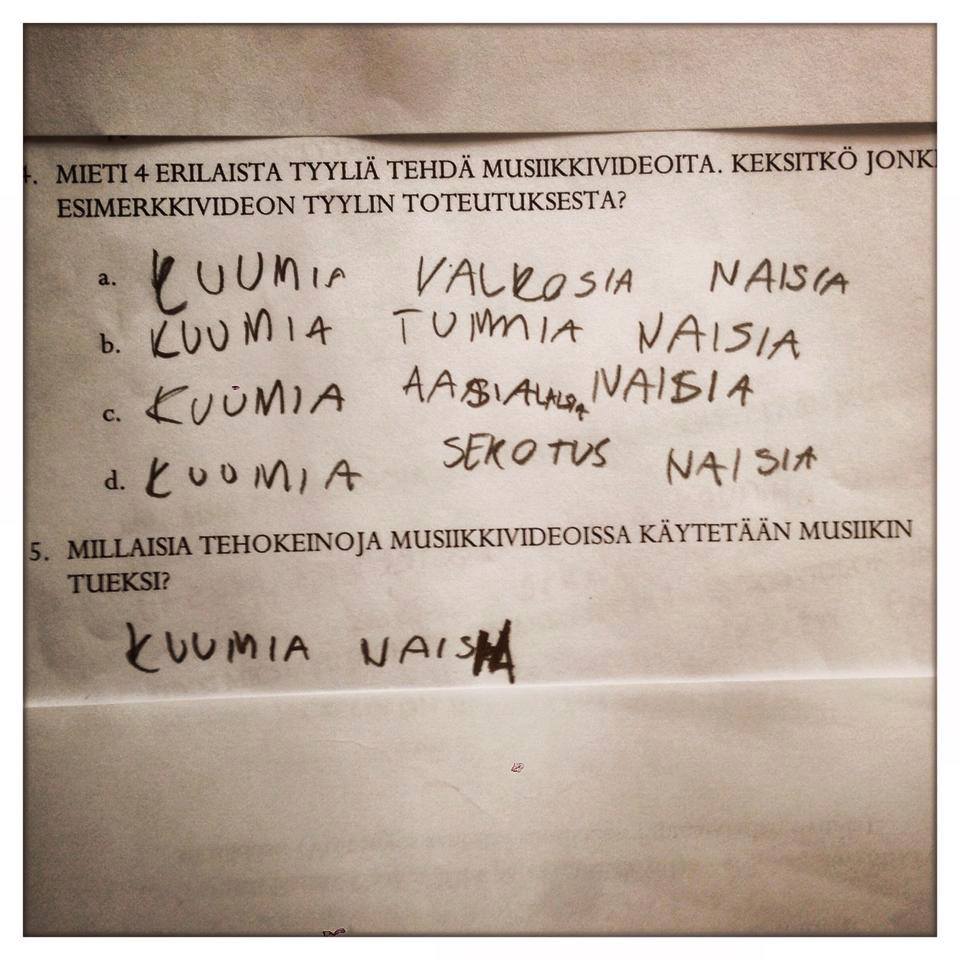 4. MIETI 4 ERILAISTA TYYLIÄ TEHDÄ MUSIIKKIVIDEOITA. KEKSITKÖ JONKI
ESIMERKKIVIDEON TYYLIN TOTEUTUKSESTA?
a. KUUMIA VALKOSIA NAISIA
b. KUUMIA TUMMIA NAISIA
c. KUUMIA AASIALALSIA NAISIA
d. KUUMIA SEKOTUS NAISIA
5. MILLAISIA TEHOKEINOJA MUSIIKKIVIDEOISSA KÄYTETÄÄN MUSIIKIN
TUEKSI?
KUUMIA NAISIA